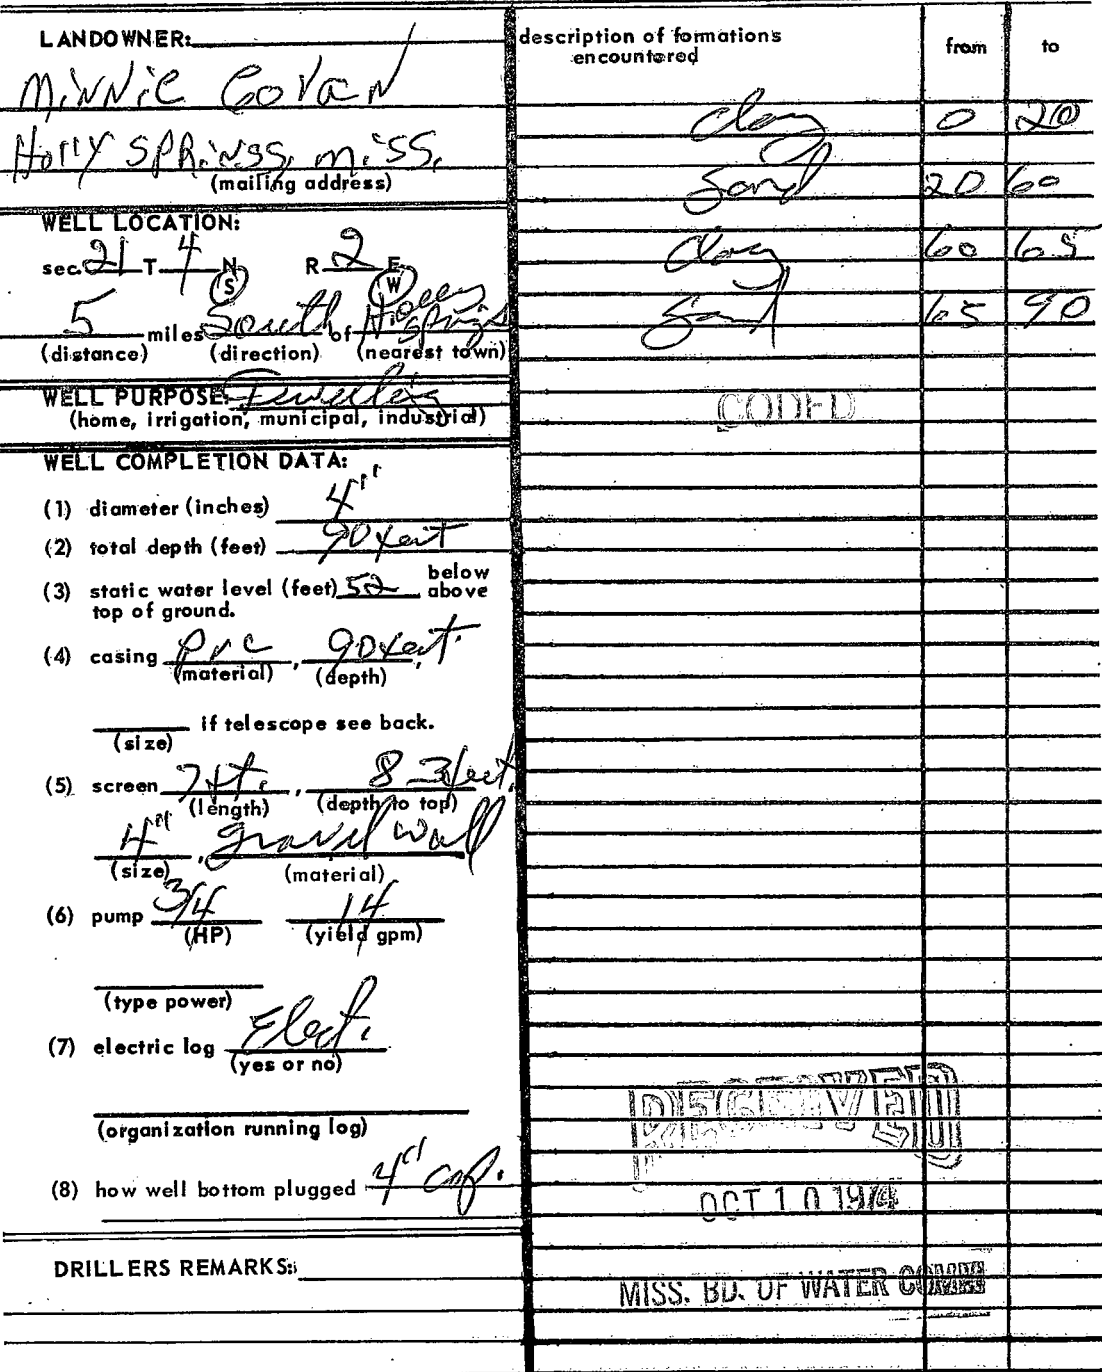 LANDOWNER:
Minnie Govan
Holly Springs, Miss.
(mailing address)
WELL LOCATION:
sec. 21 T 4 N R 2 E
S W
5 miles South of Holly Springs
(distance) (direction) (nearest town)
WELL PURPOSE:
(home, irrigation, municipal, industrial)
WELL COMPLETION DATA:
(1) diameter (inches) 4"
(2) total depth (feet) 90 feet
(3) static water level (feet) 52 below
above
top of ground.
(4) casing PVC, 90 feet.
(material) (depth)
if telescope see back.
(size)
(5) screen 7 ft., 83 feet.
(length) (depth to top)
4", gravel wall
(size) (material)
(6) pump 3/4 14
(HP) (yield gpm)
(type power)
(7) electric log Elect.
(yes or no)
(organization running log)
(8) how well bottom plugged 4" cap.
DRILLERS REMARKS:
description of formations from to
encountered
clay 0 20
sand 20 60
clay 60 65
sand 65 90
CODED
RECEIVED
OCT 10 1974
MISS. BD. OF WATER COMM